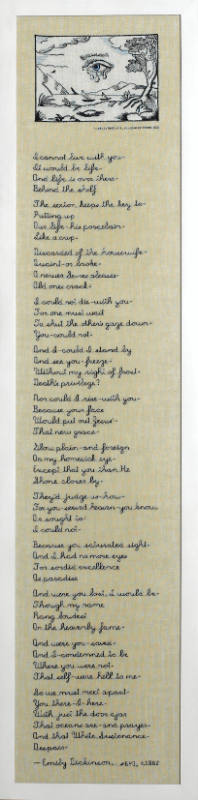 I cannot live with you-
It would be life-
And life is over there-
Behind the shelf
The sexton keeps the key to-
Putting up
Our life-his porcelain-
Like a cup-
Discarded of the housewife-
Quaint-or broke-
A newer Sevres pleases-
Old ones crack-
I could not die-with you-
For one must wait
To shut the other's gaze down-
You-could not-
And I-could I stand by
And see you-freeze-
Without my right of frost-
Death's privilege?
Nor could I rise-with you-
Because your face
Would put out Jesus'-
That new grace-
Glow plain-and foreign
On my homesick eye-
Except that you than He
Shone closer by-
They'd judge us-how-
For you-served heaven-you know,
Or sought to-
I could not-
Because you saturated sight-
And I had no more eyes
For sordid excellence
As paradise
And were you lost, I would be-
Though my name
Rang loudest
On the heavenly fame-
And were you-saved-
And I-condemned to be
Where you were not-
That self-were hell to me-
So we must meet apart-
You there-I-here-
With just the door ajar
That oceans are-and prayer-
And that White Sustenance-
Despair-
-Emily Dickinson,